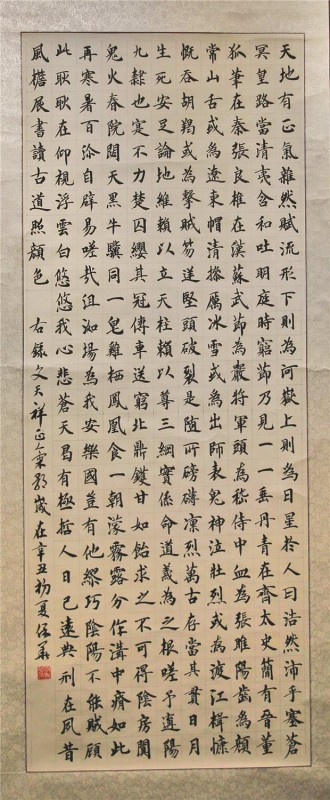 天地有正氣雜然賦流形下則為河嶽上則為日星於人曰浩然沛乎塞蒼
冥皇路當清夷含和吐明庭時窮節乃見一一垂丹青在齊太史簡在晉董
狐筆在秦張良椎在漢蘇武節為嚴將軍頭為嵇侍中血為張睢陽齒為顏
常山舌或為遼東帽清操厲冰雪或為出師表鬼神泣壯烈或為渡江楫慷
慨吞胡羯或為擊賊笏逆豎頭破裂是所磅礴凜烈萬古存當其貫日月
生死安足論地維賴以立天柱賴以尊三綱實係命道義為之根嗟予遘陽
九隸也實不力楚囚纓其冠傳車送窮北鼎鑊甘如飴求之不可得陰房闃
鬼火春院閟天黑牛驥同一皂雞棲鳳凰食一朝蒙霧露分作溝中瘠如此
再寒暑百沴自辟易嗟哉沮洳場為我安樂國豈有他繆巧陰陽不能賊顧
此耿耿在仰視浮雲白悠悠我心悲蒼天曷有極哲人日已遠典刑在夙昔
風檐展書讀古道照顏色 右錄文天祥正氣歌歲在辛丑初夏